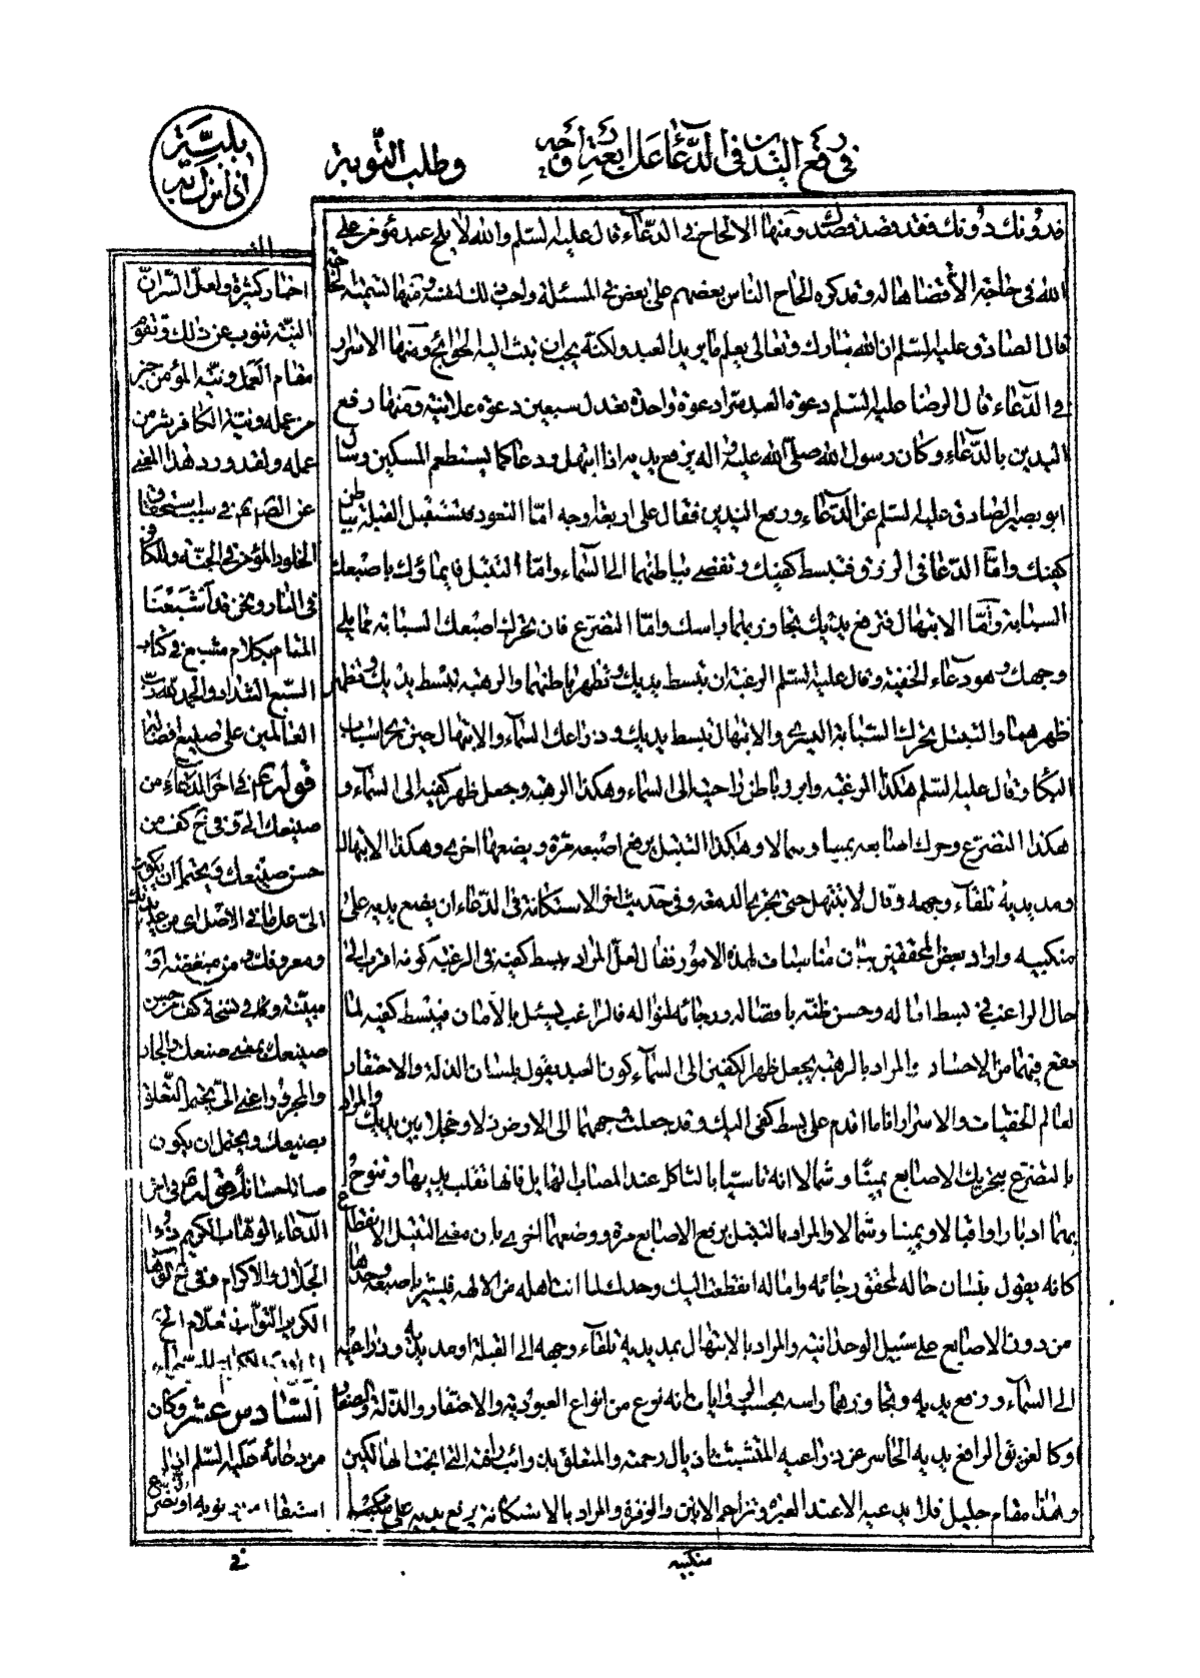 في رفع اليدين في الدعاء على اربعة اوجه
وطلب التوبة
ببلية
اذا نزل به
فدونك دونك فقد قصد قصدك ومنها الالحاح في الدعاء قال عليه السلم والله لا يلح عبد مؤمن على
الله في حاجته الا قضاها له وقد كره الحاح الناس بعضهم على بعض في المسئلة واحب ذلك لنفسه ومنها تسمية الحاجة
قال الصادق عليه السلم ان الله تبارك وتعالى يعلم ما يريد العبد ولكنه يحب ان تبث اليه الحوائج ومنها الاسرار
في الدعاء قال الرضا عليه السلم دعوة العبد سرا دعوة واحدة تعدل سبعين دعوة علانية ومنها رفع
اليدين بالدعاء وكان رسول الله صلى الله عليه واله يرفع يديه اذا ابتهل ودعا كما يستطعم المسكين وسأل
ابو بصير الصادق عليه السلم عن الدعاء ورفع اليدين فقال على اربعة اوجه اما التعوذ فتستقبل القبلة بباطن
كفيك واما الدعا في الرزق فتبسط كفيك وتفضي بباطنهما الى السماء واما التبتل فايماؤك باصبعك
السبابة واما الابتهال فترفع يديك تجاوز بهما راسك واما التضرع فان تحرك اصبعك السبابة مما يلي
وجهك وهو دعاء الخفية وقال عليه السلم الرغبة ان تبسط يديك وتظهر باطنهما والرهبة تبسط يديك وتظهر
ظهرهما والتبتل تحرك السبابة اليسرى والابتهال تبسط يديك وذراعك السماء والابتهال حين ترى اسباب
البكا وقال عليه السلم هكذا الرغبة وابرز باطن راحتيه الى السماء وهكذا الرهبة وجعل ظهر كفيه الى السماء و
هكذا التضرع وحرك اصابعه يمينا وشمالا وهكذا التبتل يرفع اصبعه مرة ويضعها اخرى وهكذا الابتهال
ومد يديه تلقاء وجهه وقال لا تبتهل حتى تجري الدمعة وفي حديث اخر الاستكانة في الدعاء ان يضع يديه على
منكبيه واراد بعض المحققين بيان مناسبات لهذه الامور فقال لعل المراد ببسط كفيه في الرغبة كونه اقرب الى
حال الراغب في بسط اماله وحسن ظنه بافضاله ورجائه لنواله فالراغب يسئل بالامان فيبسط كفيه لما
يقع فيهما من الاحسان والمراد بالرهبة بجعل ظهر الكفين الى السماء كون العبد يقول بلسان الذلة والاحتقار
لعالم الخفيات والاسرار انا ما اقدم على بسط كفي اليك وقد جعلت وجههما الى الارض ذلا وخجلا بين يديك والمراد
بالتضرع بتحريك الاصابع يمينا وشمالا انه تاسيا بالثاكل عند المصاب الهايل فانها تقلب يديها وتنوح
بهما ادبارا واقبالا ويمينا وشمالا والمراد بالتبتل برفع الاصابع مرة ووضعها اخرى بان معنى التبتل الانقطاع
كانه يقول بلسان حاله لمحقق رجائه واماله انقطعت اليك وحدك لما انت اهله من الالهية فليشر باصبعه وحدها
من دون الاصابع على سبيل الوحدانية والمراد بالابتهال بمد يديه تلقاء وجهه الى القبلة او مد يديه وذراعيه
الى السماء ورفع يديه وتجاوزهما راسه بحسب الروايات انه نوع من انواع العبودية والاحتقار والذلة والصغار
او كالغريق الرافع يديه الحاسر عن ذراعيه المتشبث باذيال رحمته والمتعلق بذوائب رافته التي انجت الهالكين
وهذا مقام جليل فلا يدعيه الا عند العبرة وتزاحم الانين والزفرة والمراد بالاستكانة برفع يديه على منكبيه
منكبيه
اخبار كثيرة ولعل السر ان
النية تنوب عن ذلك وتقوم
مقام العمل ونية المؤمن خير
من عمله ونية الكافر شر من
عمله ولقد ورد هذا المعنى
عن الصادق م في سبب استحقاق
الخلود المؤمن في الجنة والكافر
في النار ونحن قد اشبعنا
المقام بكلام مشبع في كتاب
السبع الشداد والحمد لله رب
العالمين على صنيع افضاله
قوله م في اخر الدعاء من
صنيعك الي وفي نخ كف من
حسن صنيعك ويحتمل ان يكون
الي على ما في الاصل اي من عندك
ومعروفك و من مبغضة او
مبينة وكا في نسخة كف من حسن
صنيعك بمعنى صنعك والجار
والمجرور اعني الي يحتمل التعلق
بصنيعك ويحتمل ان يكون
صائلحسانك قوله م في اخر
الدعاء الوهاب الكريم ذو
الجلال والاكرام وفي نخ كف
الكريم التواب علام
السادس عشر وكان
من دعائه عليه السلم اذا
استقال من ذنوبه او تضرع
في